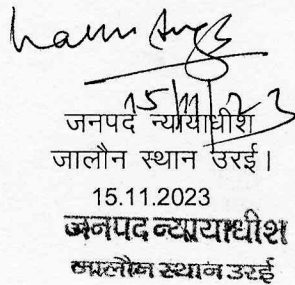 15/11/23
जनपद न्यायाधीश
जालौन स्थान उरई।
15.11.2023
जनपद न्यायाधीश
जालौन स्थान उरई